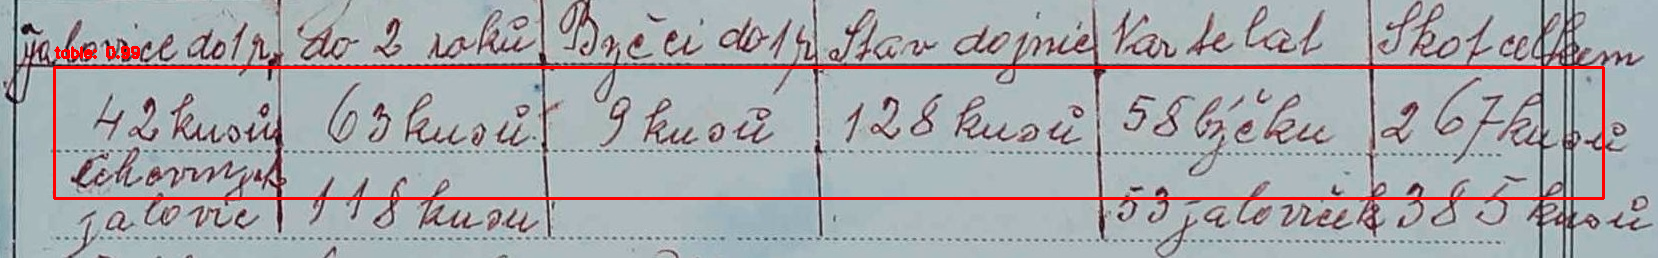 jalovice do 1 r. do 2 roků Býčci do 1 r Stav dojnic Nar telat Skot celkem
table: 0.99
42 kusů 63 kusů 9 kusů 128 kusů 58 býčku 267 kusů
chovných
jalovic 118 kusu 53 jaloviček 385 kusů